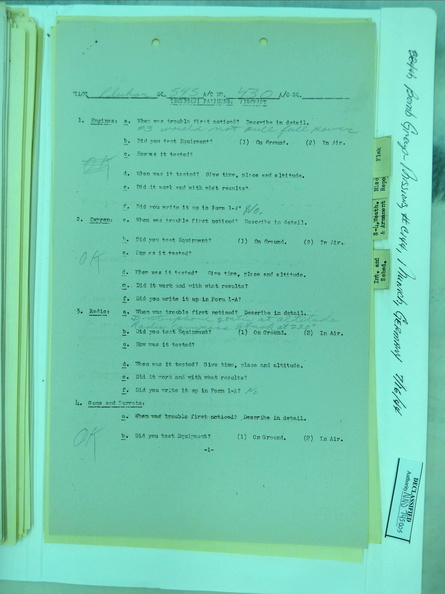 PILOT Pluhar SQ. 545 A/C NO. 430 A/C
1. Engines: a. When was trouble first noticed? Describe in detail.
#3 would not pull full power
b. Did you test Equipment? (1) On Ground. (2) In Air.
c. How was it tested?
d. When was it tested? Give time, place and altitude.
e. Did it work and with what results?
f. Did you write it up in Form 1-A? No.
2. Oxygen: a. When was trouble first noticed? Describe in detail.
b. Did you test Equipment? (1) On Ground. (2) In Air.
OK
c. How was it tested?
d. When was it tested? Give time, place and altitude.
e. Did it work and with what results?
f. Did you write it up in Form 1-A?
3. Radio: a. When was trouble first noticed? Describe in detail.
at altitude
Radio
b. Did you test Equipment? (1) On Ground. (2) In Air.
c. How was it tested?
d. When was it tested? Give time, place and altitude.
e. Did it work and with what results?
f. Did you write it up in Form 1-A? No
4. Guns and Turrets:
a. When was trouble first noticed? Describe in detail.
OK
b. Did you test Equipment? (1) On Ground. (2) In Air.
-1-
Flak
Misc Repo
& Armament
Int. and
Sched.
384th Bomb Group - Mission #
Munich, Germany
DECLASSIFIED
Authority NND 745005